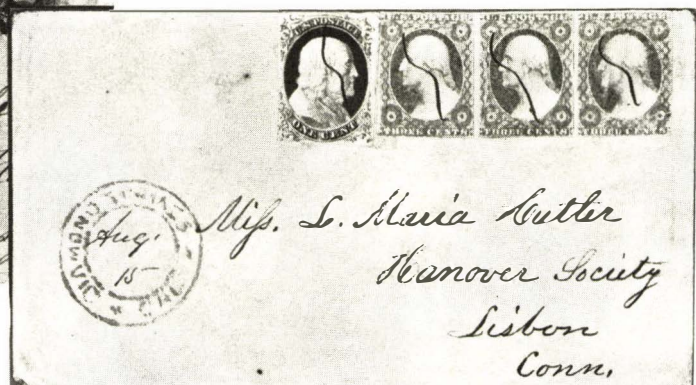 U.S. POSTAGE
ONE CENT
THREE CENTS
THREE CENTS
THREE CENTS
DIAMOND SPRINGS CAL.
Aug.
15
Miss. L. Maria Cutler
Hanover Society
Lisbon
Conn.